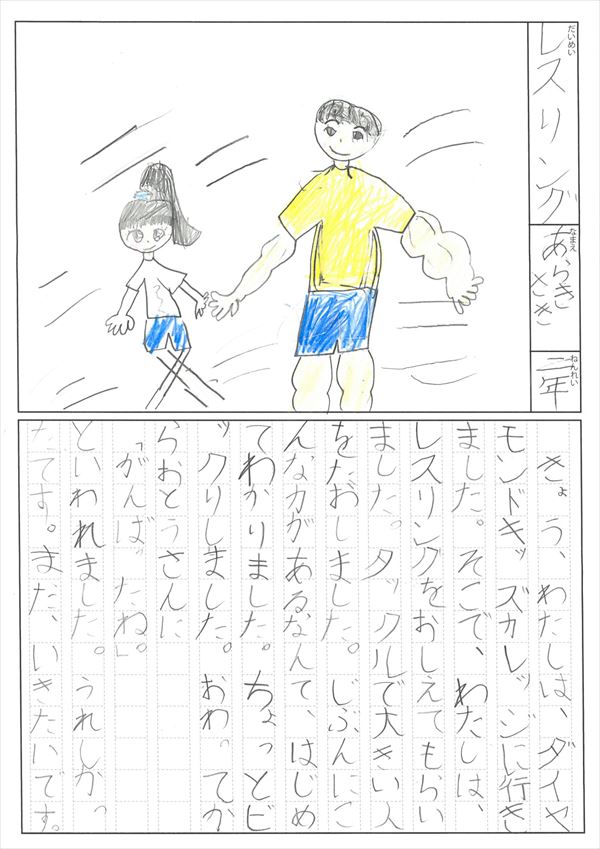 だいめい
レスリング
なまえ
あらき
さき
ねんれい
三年
きょう、わたしは、ダイヤ
モンドキッズカレッジに行き
ました。そこで、わたしは、
レスリングをおしえてもらい
ました。タックルで大きい人
をたおしました。じぶんにこ
んな力があるなんて、はじめ
てわかりました。ちょっとビ
ックリしました。おわってか
らおとうさんに
「がんばったね」。
といわれました。うれしかっ
たです。また、いきたいです。